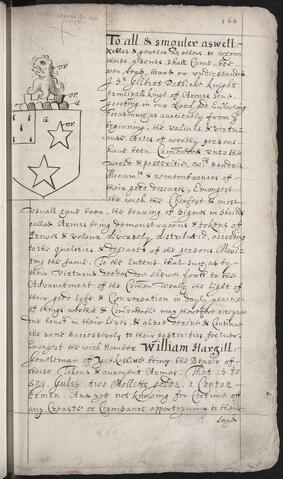 164
To all & singuler aswell
Nobles & gentles as others to whom
these presents shall come, be seen,
read, heard or understanded
Sr Gilbert Dethicke knight
principall kinge of Armes send
greeting in our Lord god Everlasting
Forasmuch as aunciently from the
beginning, the valiant & vertu
ouse Actes of worthy persons
have been Commended unto the
world & posteritie, with sundrie
Monuments & remembrances of
their good desearts, Emongst
the wich the Cheefest & most
usuall have been, the bearing of Signes in Sheilds
called Armes being demonstracons & tokens of
prowes & valour diversly distributed, according
to the qualities & desearts of the persons Meri
ting the same. To the Entent that such as by
their Vertuous deedes doe shewe forth to the
Advauncement of the Comon Wealy the light of
their good lyfe & Conversation in dayly practise
of things worthie & Comendable may therefore receyve
due honor in their lives, & also derive & Continue
the same successively to their posterities for ever.
Emongst the wich Number William Hargill
gentleman of Yorkeshire being the Bearer of
these Tokens & auncyent Armes. That is to
say. Gules. two Mollets golde, a Canton
Ermen. And yet not knowing for certeine of
any Creaste or Cognisance appertayning to those
sayd
or
G
or